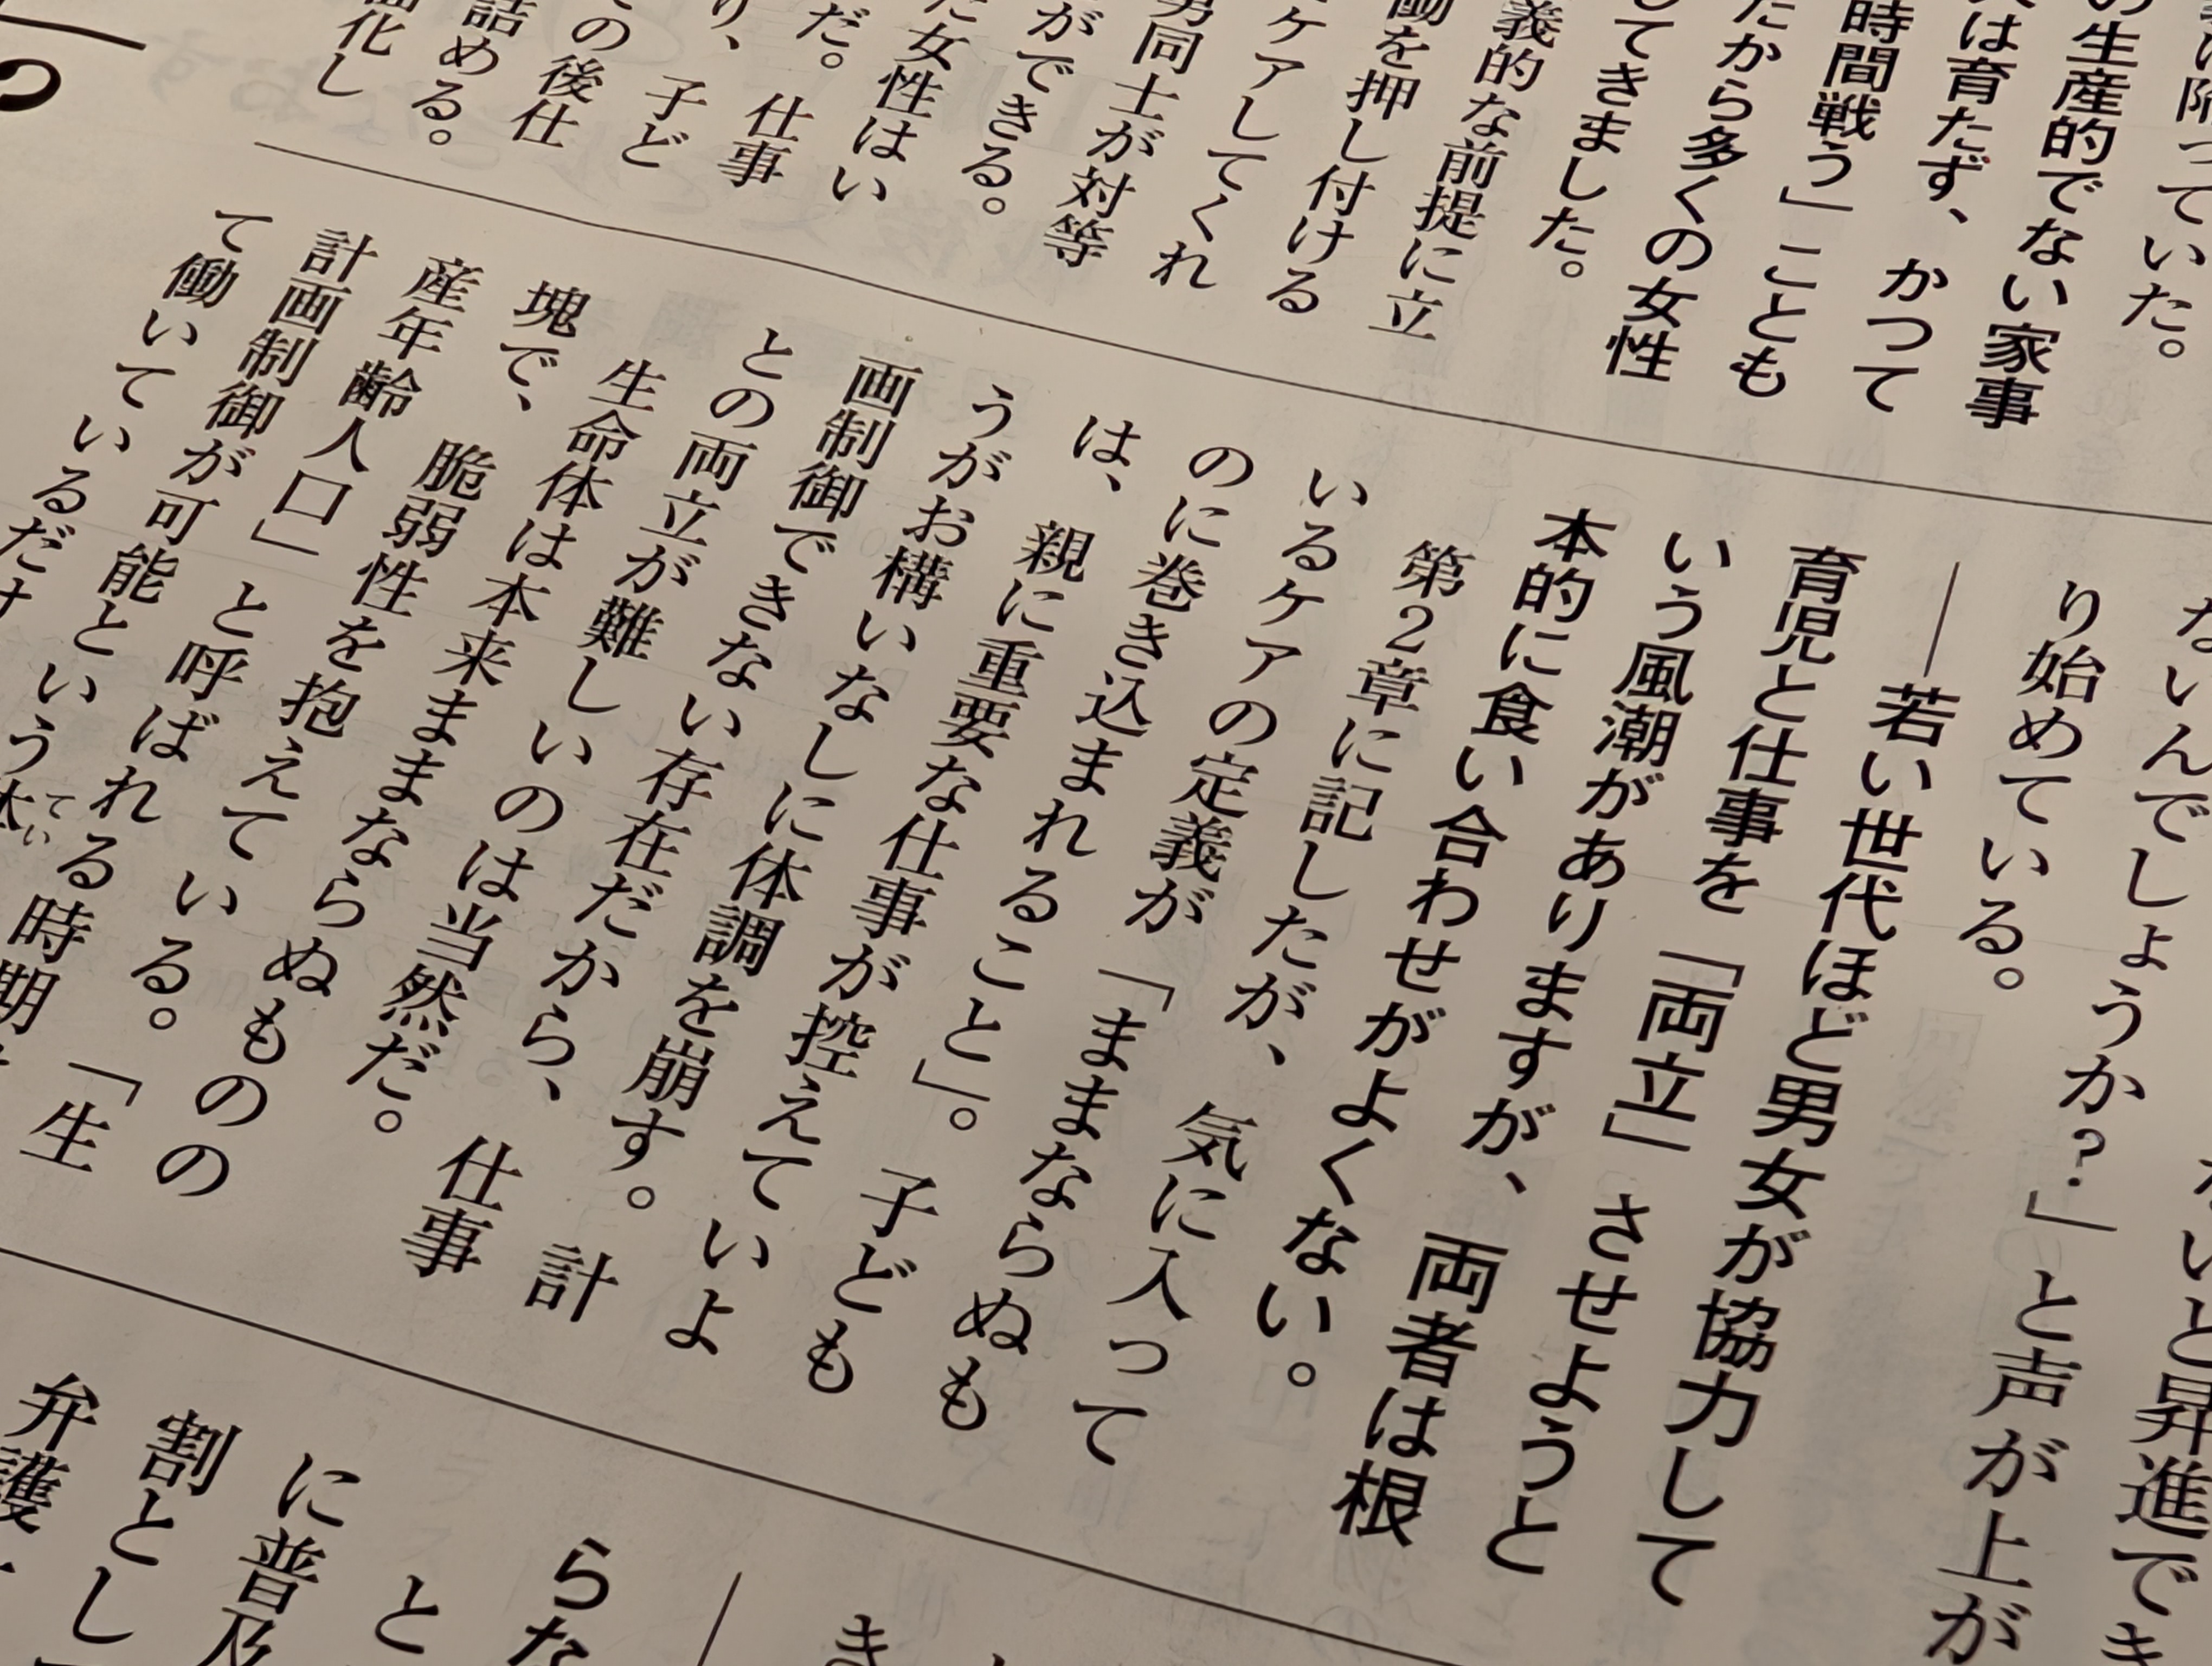 に陥っていた。
の生産的でない家事
は育たず、かつて
時間戦う」ことも
たから多くの女性
してきました。
義的な前提に立
働を押し付ける
ケアしてくれ
男同士が対等
ができる。
た女性はい
だ。仕事
り、子ど
の後仕
詰める。
化し
ないんでしょうか?」と声が上が
り始めている。
――若い世代ほど男女が協力して
育児と仕事を「両立」させようと
いう風潮がありますが、両者は根
本的に食い合わせがよくない。
第2章に記したが、気に入って
いるケアの定義が「ままならぬも
のに巻き込まれること」。子ども
は、親に重要な仕事が控えていよ
うがお構いなしに体調を崩す。計
画制御できない存在だから、仕事
との両立が難しいのは当然だ。
生命体は本来ままならぬものの
塊で、脆弱性を抱えている。「生
産年齢人口」と呼ばれる時期
計画制御が可能という体てい
て働いているだけ
いと昇進でき
き
らな
と
に普及
割とし
弁護士